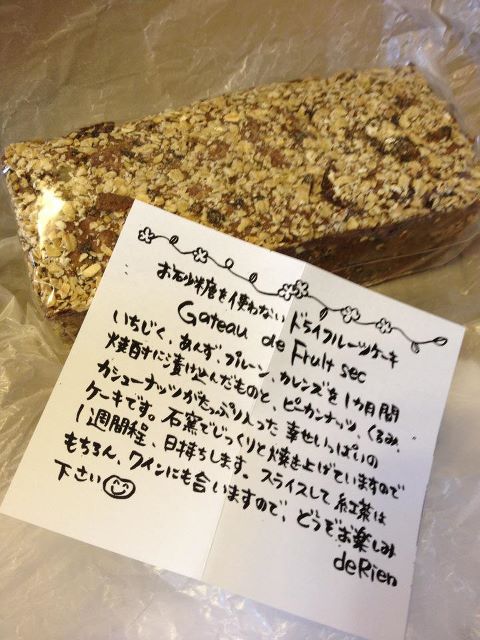 お砂糖を使わないドライフルーツケーキ
Gateau de Fruit sec
いちじく、あんず、プルーン、カレンズを1カ月間
焼酎に漬け込んだものと、ピーカンナッツ、くるみ、
カシューナッツがたっぷり入った幸せいっぱいの
ケーキです。石窯でじっくりと焼き上げていますので
1週間程、日持ちします。スライスして紅茶は
もちろん、ワインにも合いますので、どうぞお楽しみ
下さい
deRien